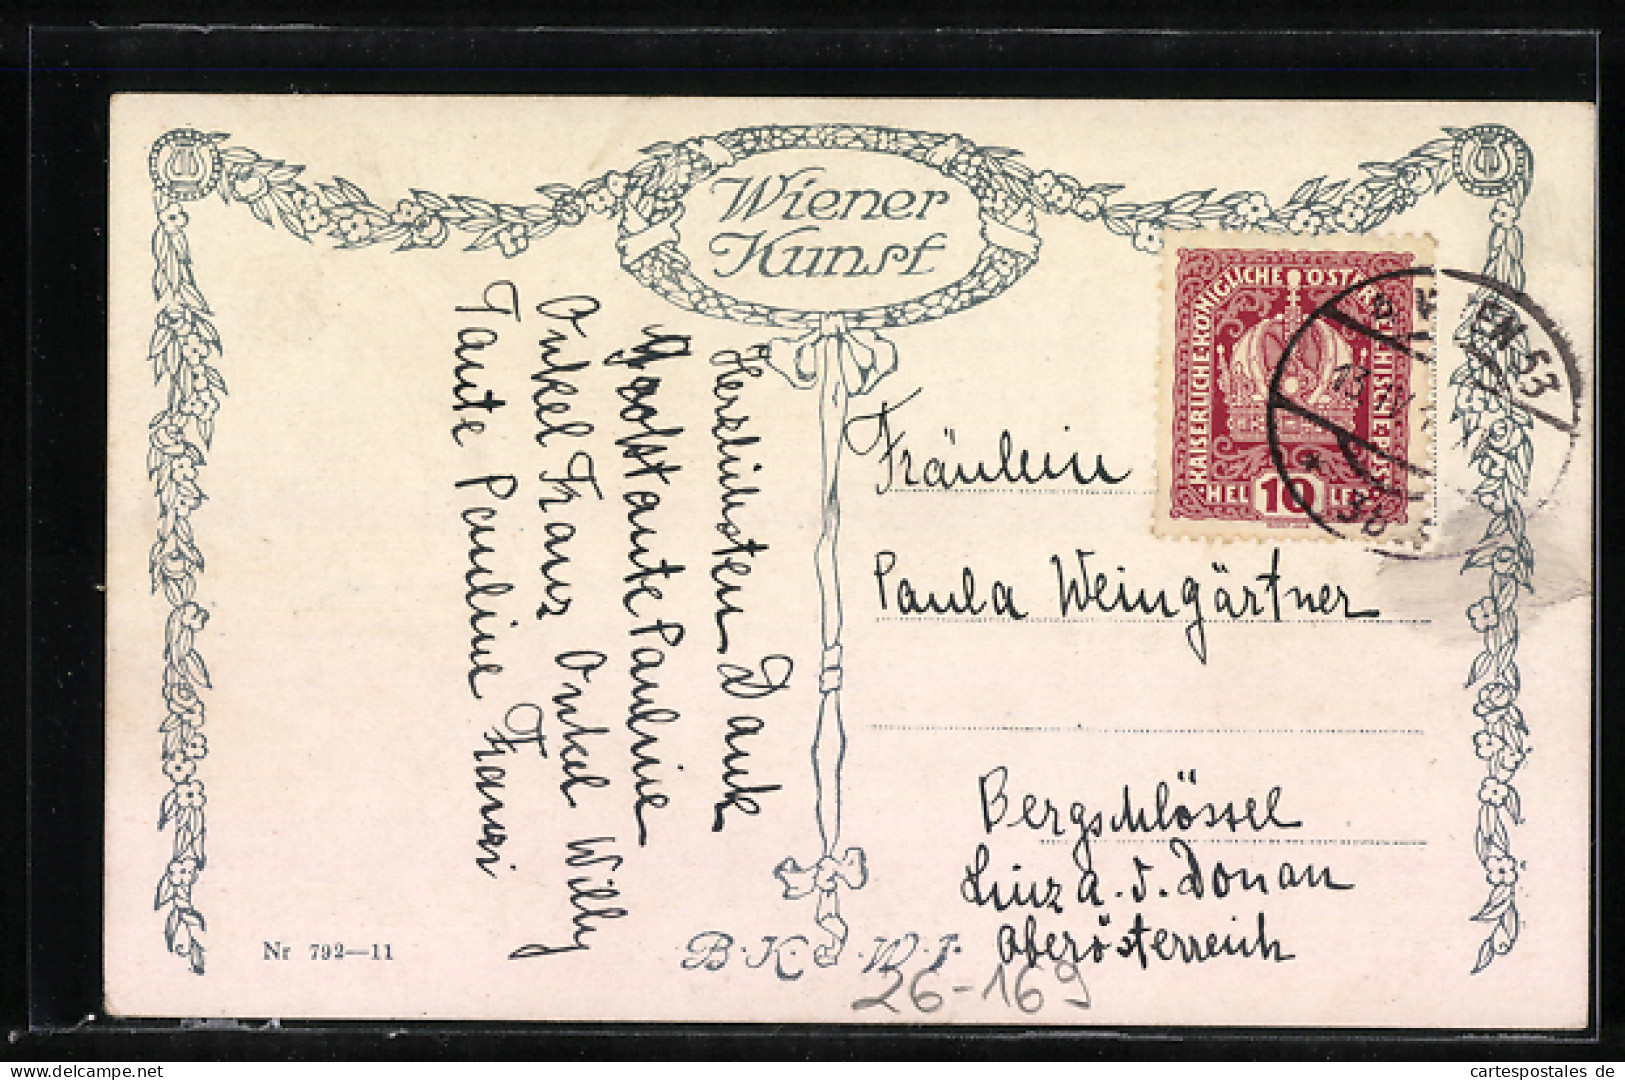 Wiener
Kunst
KAISERLICHE·KÖNIGLICHE ÖSTERREICHISCHE·POST
HELLER
10
WIEN 53
13
3b
Herzlichsten Dank
Tante Pauline
Onkel Franz Onkel Willy
Tante Pauline Franzi
Fräulein
Paula Weingärtner
Bergschlössel
Linz a. d. Donau
Oberösterreich
Nr 792—11
B.K.W.I.
26-169
www.delcampe.net
cartespostales de